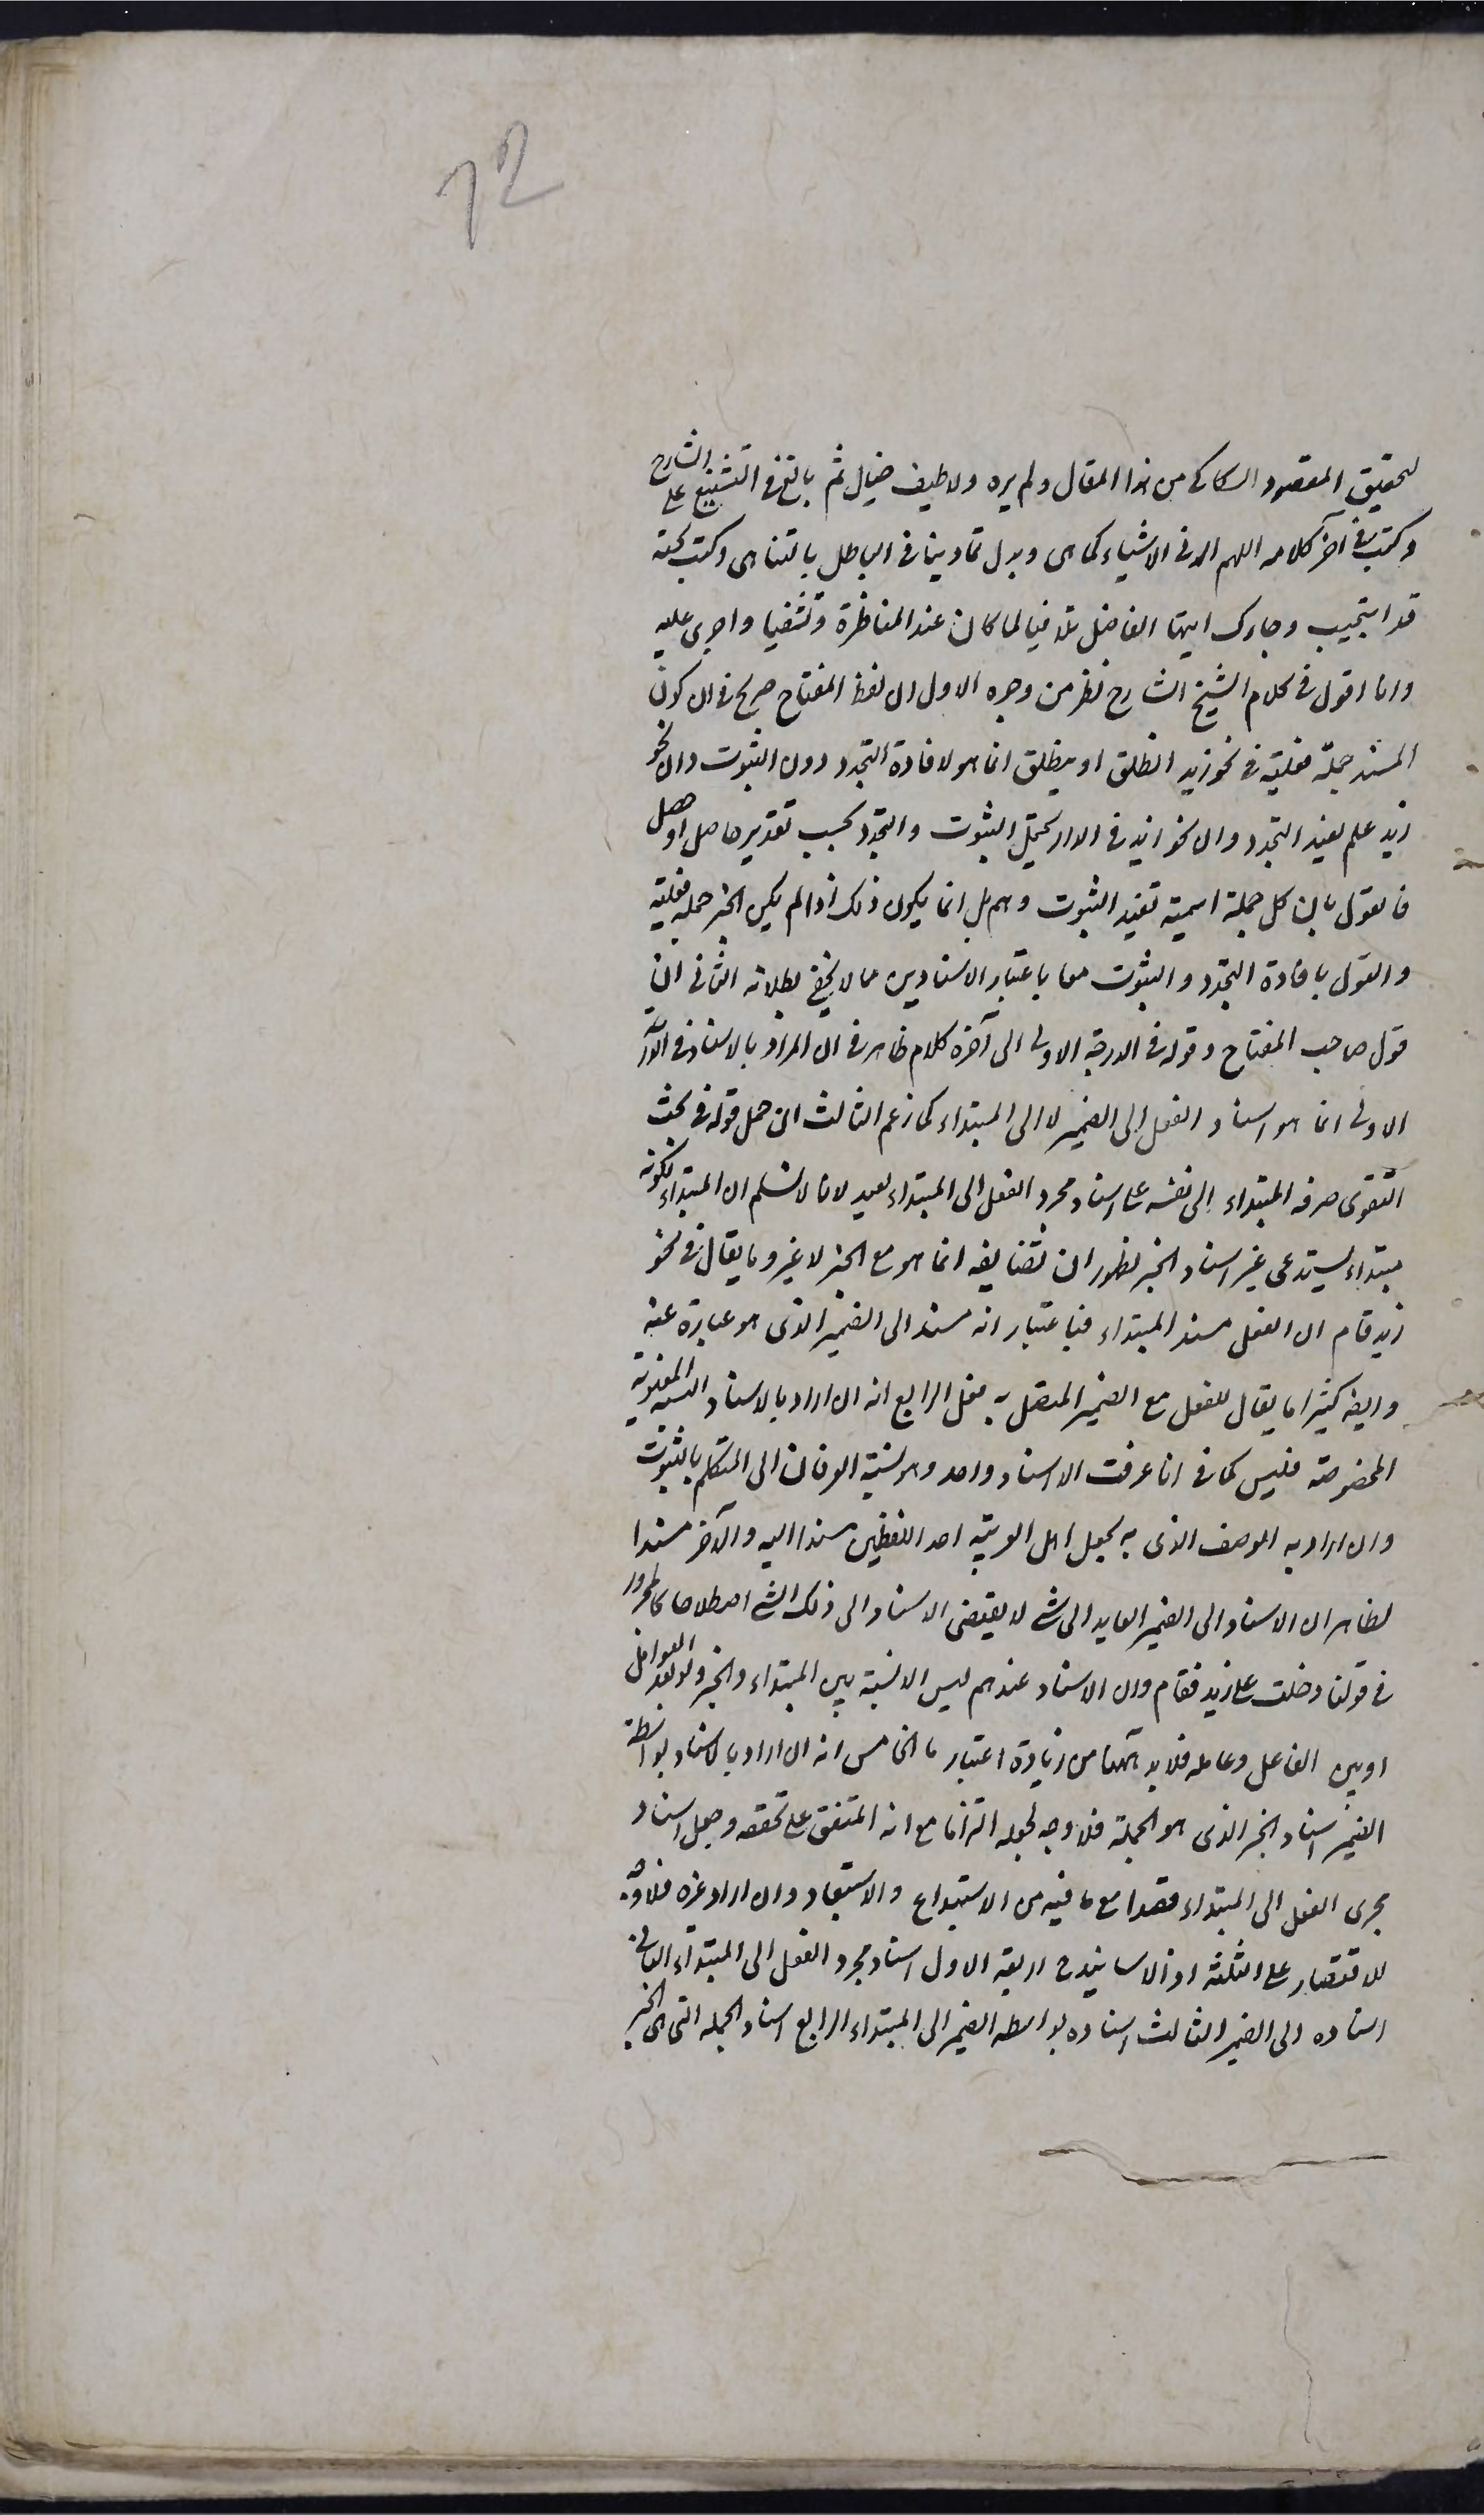 12
لتحقيق المقصود السكاكى من هذا المقال ولم يره ولا طيف خيال ثم بالغ فى التشنيع على الشارح
وكتب فى آخر كلامه اللهم ارنى الاشياء كما هى وبدل تمادينا فى الباطل بالتناهى وكتب تحته
قد استجيب وجاءك ايها الفاضل تلافيا لما كان عند المناظرة وتشفيا واجرى عليه
وانا اقول فى كلام الشيخ الشارح نظر من وجوه الاول ان لفظ المفتاح صريح فى ان كون
المسند جملة فعلية فى نحو زيد انطلق او ينطلق انما هو لافادة التجدد دون الثبوت وان نحو
زيد علم يفيد التجدد وان نحو زيد فى الدار يحتمل الثبوت والتجدد بحسب تقدير حاصل او حصل
فالقول بان كل جملة اسمية تفيد الثبوت وهم بل انما يكون ذلك اذا لم يكن الخبر جملة فعلية
والقول بافادة التجدد والثبوت معا باعتبار الاسنادين مما لا يخفى بطلانه الثانى ان
قول صاحب المفتاح وقوله فى الدرجة الاولى الى آخره كلام ظاهر فى ان المراد بالاسناد فى الدرجة
الاولى انما هو اسناد الفعل الى الضمير لا الى المبتداء كما زعم الثالث ان حمل قوله فى بحث
التقوى صرفه المبتداء الى نفسه على اسناد مجرد الفعل الى المبتداء بعيد لانا لا نسلم ان المبتداء لكونه
مبتداء يستدعى غير اسناد الخبر لظهور ان تضايفه انما هو مع الخبر لا غير وما يقال فى نحو
زيد قام ان الفعل مسند المبتداء فباعتبار انه مسند الى الضمير الذى هو عبارة عنه
وايضا كثيرا ما يقال للفعل مع الضمير المتصل به فعل الرابع انه ان اراد بالاسناد النسبة المعنوية
المخصوصة فليس كما فى انا عرفت الا اسناد واحد وهو نسبة العرفان الى المتكلم بالثبوت
وان اراد به الوصف الذى به يجعل اهل العربية احد اللفظين مسندا اليه والآخر مسندا
لظاهر ان الاسناد الى الضمير العايد الى شئ لا يقتضى الاسناد الى ذلك الشئ اصطلاحا كالمجرور
فى قولنا دخلت على زيد فقام وان الاسناد عندهم ليس الا نسبة بين المبتداء والخبر ولو بعد العوامل
او بين الفاعل وعامله فلا بد ههنا من زيادة اعتبار ما الخامس انه ان اراد بالاسناد بواسطة
الضمير اسناد الخبر الذى هو الجملة فلا وجه لجعله التزاما مع انه المتفق على تحققه وجعل اسناد
مجرى الفعل الى المبتداء قصدا مع ما فيه من الاستبداع والاستبعاد وان اراد غيره فلا وجه
للاقتصار على الثلثة اذ الاسانيد ح اربعة الاول اسناد مجرد الفعل الى المبتداء الثانى
اسناده الى الضمير الثالث اسناده بواسطة الضمير الى المبتداء الرابع اسناد الجملة التى هى الخبر